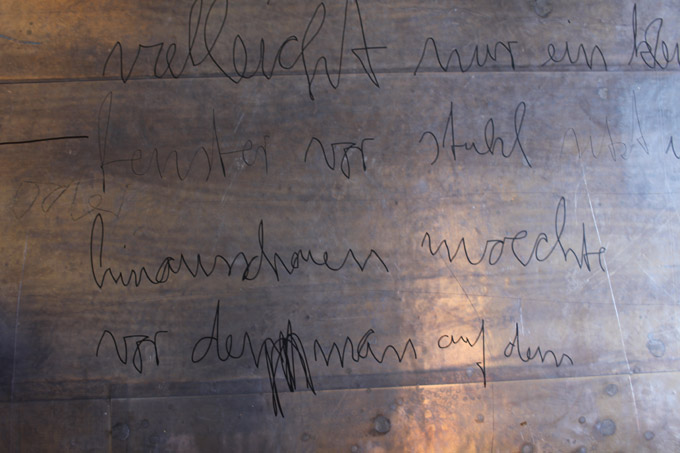 vielleicht nur ein
fenster vor stuhl
hinausschauen moechte
vor dem man auf dem